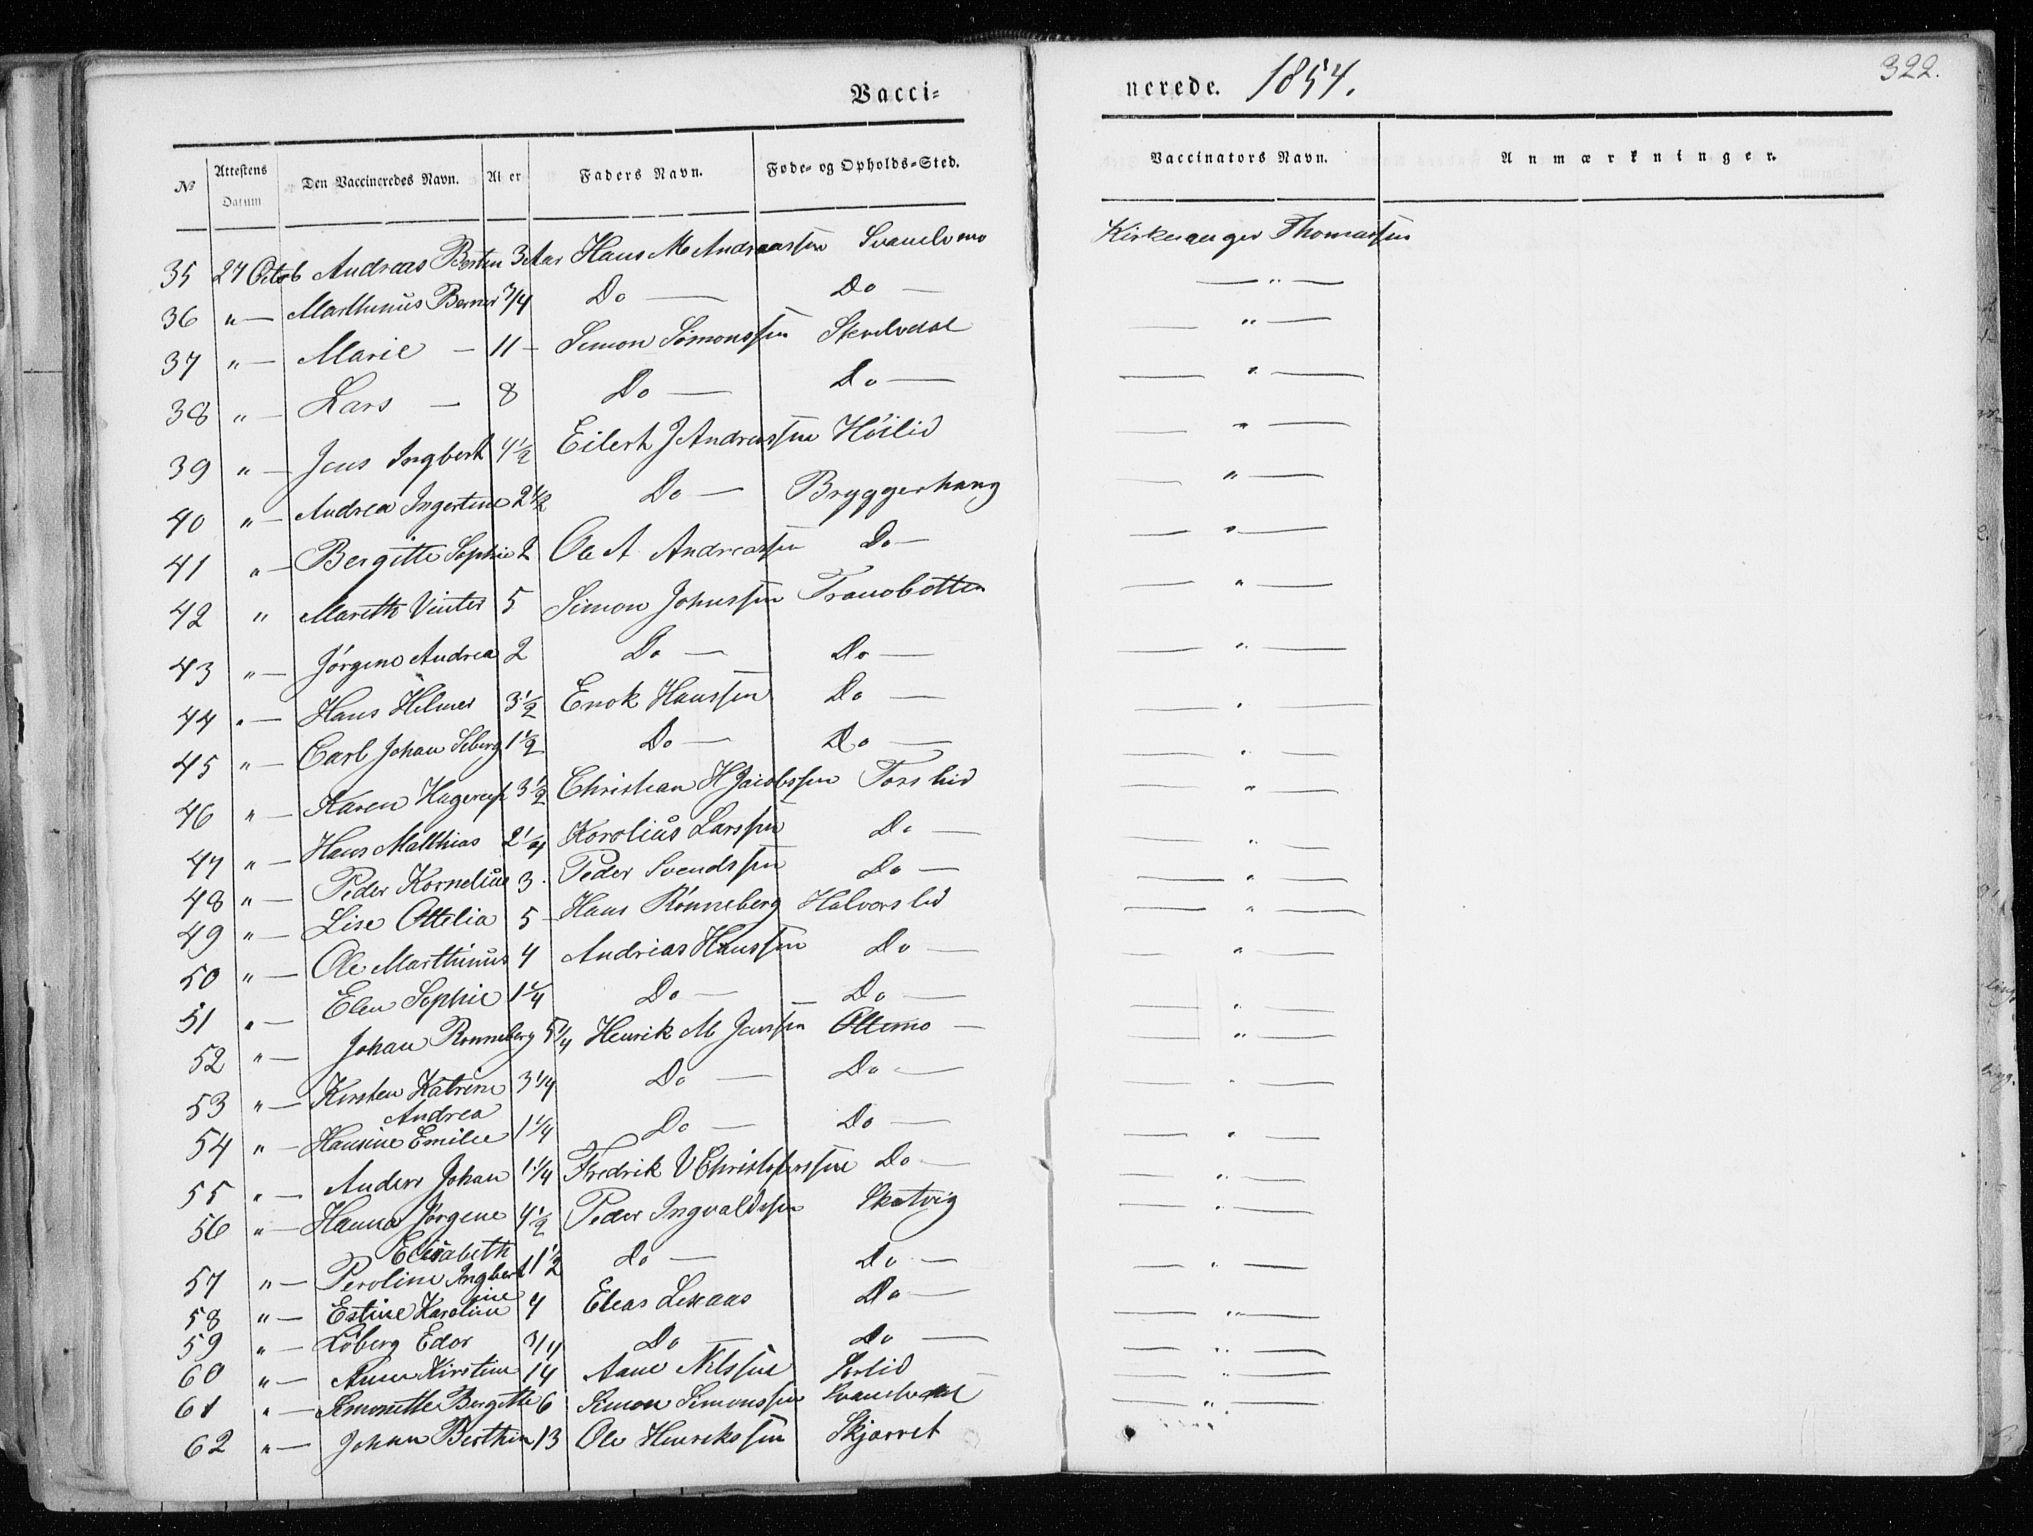 Vacci= nerede. 1854. 322.
№ Attestens Datum Den Vaccineredes Navn. Alder Faders Navn. Føde- og Opholds-Sted. Vaccinators Navn. Anmærkninger.
35 27 Octob Andreas Berten 3 Aar Hans M Andreassen Svanelvmo Kirkesanger Thomassen
36 " — Marthinus Berner 3/4 Do — Do — — " —
37 " — Marie — 11 — Simon Simonssen Skelvdal — " —
38 " — Lars — 8 Do — Do — — " —
39 " — Jens Ingbert 4 1/2 Eilert J Andreassen Höilid — " —
40 " — Andrea Ingertine 2 1/2 Do — Bryggerhaug — " —
41 " — Bergitte Sophie 2 Ole A Andreassen Do — — " —
42 " Mareth Vinter 5 Simon Johnssen Tranobotten — " —
43 " — Jörgine Andrea 2 Do — Do — — " —
44 " — Hans Helmer 3 1/2 Enok Hanssen Do — — " —
45 " — Carl Johan Seberg 1 1/2 Do — Do — — " —
46 " — Karen Hagerup 3 1/2 Christian H Jacobssen Torslid — " —
47 " — Hans Matthias 2 1/4 Korolius Larssen Do — — " —
48 " — Peder Kornelius 3 Peder Svendssen Do — — " —
49 " — Lise Ottilia 5 — Hans Rönneberg Halvorslid — " —
50 " — Ole Marthinus 4 Andreas Hanssen Do — — " —
51 " — Elen Sophie 1 1/4 Do — Do — — " —
52 " — Johan Ronneberg 5 1/4 Henrik M Jenssen Ottemo — — " —
53 " — Kirsten Katrine 3 1/4 Do — Do — — " —
Andrea
54 " — Hansine Emilie 1 1/4 Do — Do — — " —
55 " — Anders Johan 1 1/4 Fredrik V Christofersssen Do — — " —
56 " — Hanna Jörgene 4 1/2 Peder Ingvaldssen Skatvig — " —
Elisabeth
57 " — Peroline Ingbert 11 1/2 do — Do — — " —
ine
58 " — Estine Karoline 4 Elias Do — — " —
59 " — Löberg Edor 3/4 Do — Do — — " —
60 " — Anne Kirstine 14 Aane Nilssen Sorlid — " —
61 " — Simonette Bergitte 6 Simon Simonssen — " —
62 " — Johan Berthin 13 Ole Henrikssen Skjærret